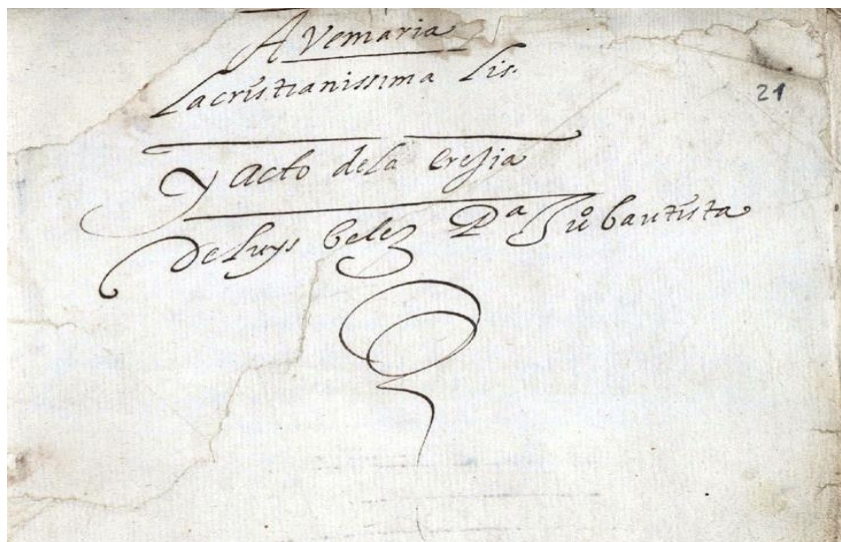 Avemaria
Lacristianissima Lis.
21
Y acto dela eregia
De Luys belez Pª Juº bautista